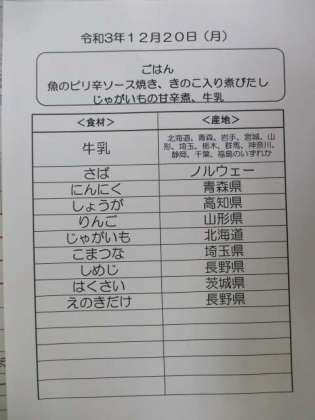 令和3年12月20日（月）
ごはん
魚のピリ辛ソース焼き、きのこ入り煮びたし
じゃがいもの甘辛煮、牛乳
＜食材＞ ＜産地＞
牛乳 北海道、青森、岩手、宮城、山
形、埼玉、栃木、群馬、神奈川、
静岡、千葉、福島のいずれか
さば ノルウェー
にんにく 青森県
しょうが 高知県
りんご 山形県
じゃがいも 北海道
こまつな 埼玉県
しめじ 長野県
はくさい 茨城県
えのきだけ 長野県
26